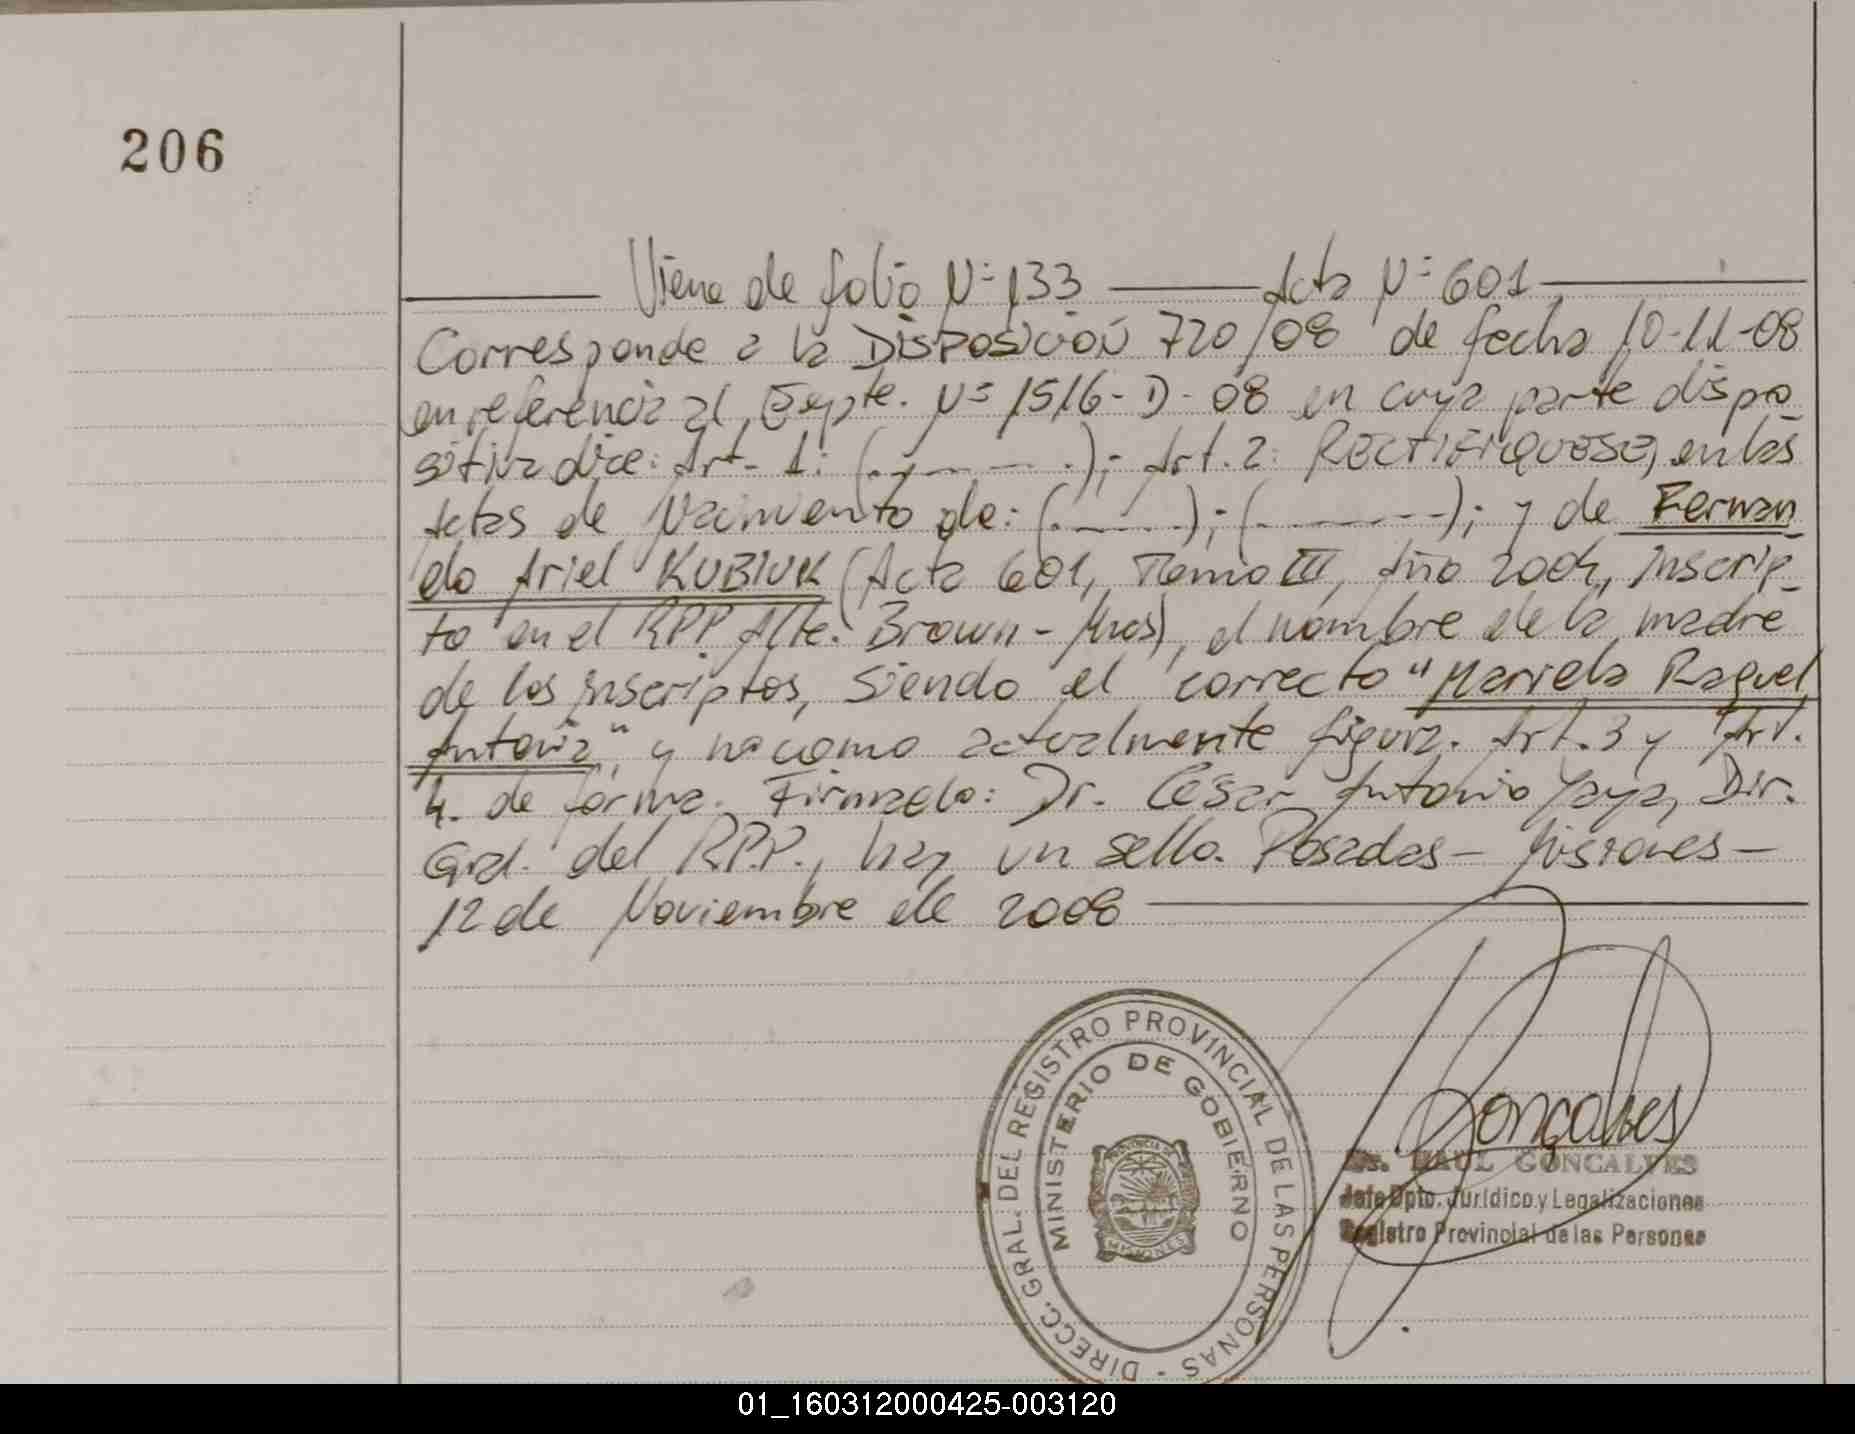 206
Viene de folio Nº 133 Acta Nº 601
Corresponde a la DISPOSICIÓN 720/08 de fecha 10-11-08
en referencia al Expte. Nº 1516-D-08 en cuya parte dispo
sitiva dice: Art. 1: (.......); Art. 2: RECTIFIQUESE, en las
Actas de Nacimiento de: (.......); (.......); y de Fernan
do Ariel KUBIUK (Acta 601, Tomo III, Año 2004, Inscrip-
to en el RPP. Alte. Brown - Mnes), el nombre de la madre
de los inscriptos, siendo el correcto "Mariela Raquel
Antonia" y no como actualmente figura. Art. 3 y Art.
4. de forma. Firmado: Dr. César Antonio Yaya, Dir.
Gral. del R.P.P., hay un sello. Posadas - Misiones -
12 de Noviembre de 2008
DIRECC. GRAL. DEL REGISTRO PROVINCIAL DE LAS PERSONAS -
MINISTERIO DE GOBIERNO
PROVINCIA DE
MISIONES
Gonçalves
RAUL GONCALVES
Jefe Dpto. Jurídico y Legalizaciones
Registro Provincial de las Personas
01_160312000425-003120